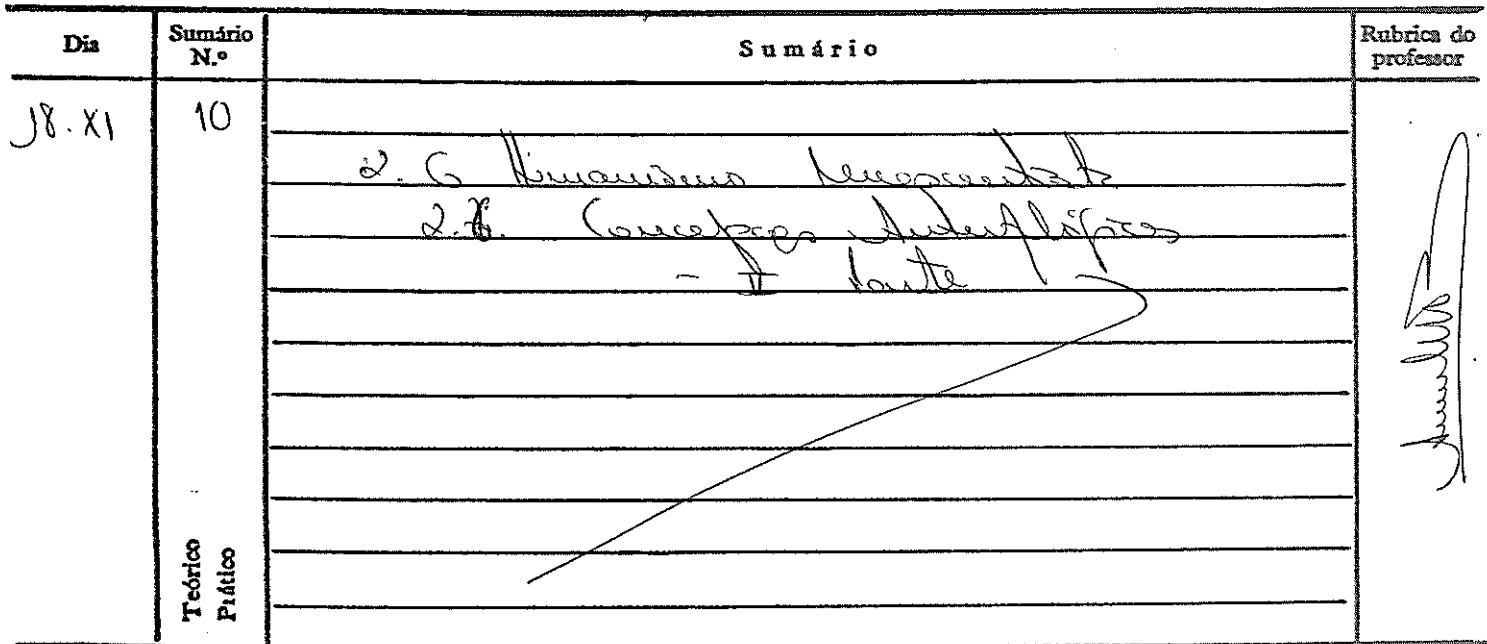 Dia Sumário N.º Sumário Rubrica do professor
18.XI 10
2. O Humanismo Renascentista
2.1. Concepções Antropológicas
- II Parte
Teórico
Prático